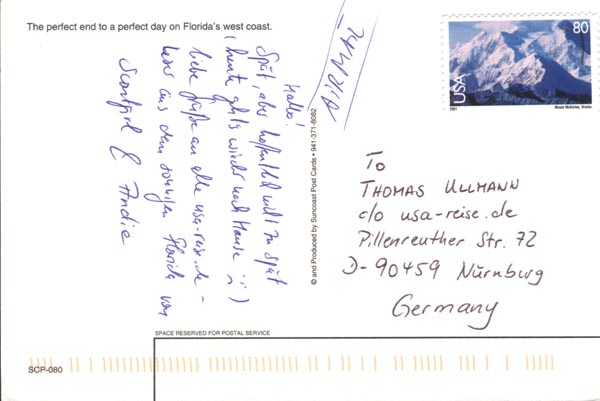 The perfect end to a perfect day on Florida's west coast.
Hallo!
Spät, aber hoffentlich nicht zu spät
(heute geht's wieder nach Hause :-( )
liebe Grüße an alle usa-reise.de -
leser aus dem sonnigen Florida von
& Andie
© and Produced by Suncoast Post Cards • 941-371-8082
80
USA
2001
Mount McKinley, Alaska
To
THOMAS ULLMANN
c/o usa-reise.de
Pillenreuther Str. 72
D-90459 Nürnburg
Germany
SPACE RESERVED FOR POSTAL SERVICE
SCP-080